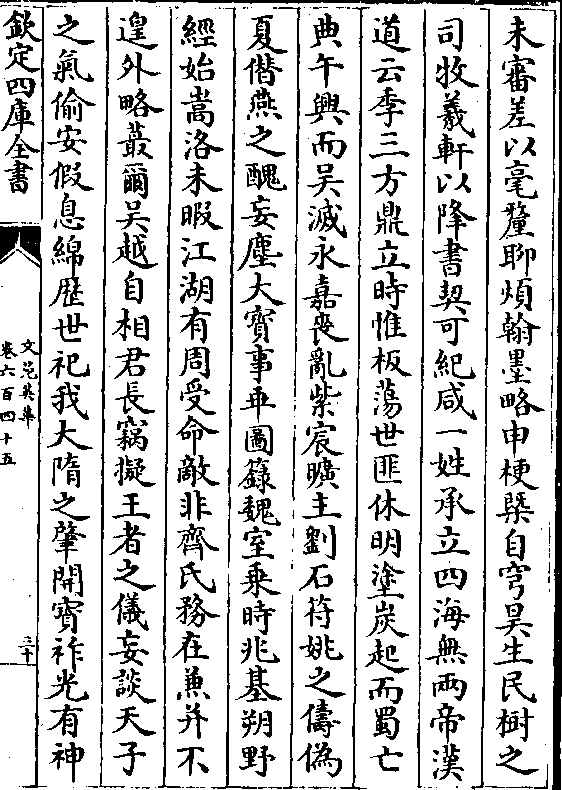 未審差以毫釐聊煩翰墨略申梗槩自穹昊生民樹之
司牧羲軒以降書契可紀咸一姓承立四海無兩帝漢
道云季三方鼎立時惟板蕩世匪休明塗炭起而蜀亡
典午興而吴滅永嘉喪亂紫宸曠主劉石苻姚之儔偽
夏僭燕之醜妄塵大寶事乖圖籙魏室乗時兆基朔野
經始嵩洛未暇江湖有周受命敵非齊氏務在兼并不
遑外略蕞爾吴越自相君長竊擬王者之儀妄談天子
之氣偷安假息綿歴世祀我大隋之肇開寶祚光有神
欽定四庫全書
文苑英華
卷六百四十五
三十